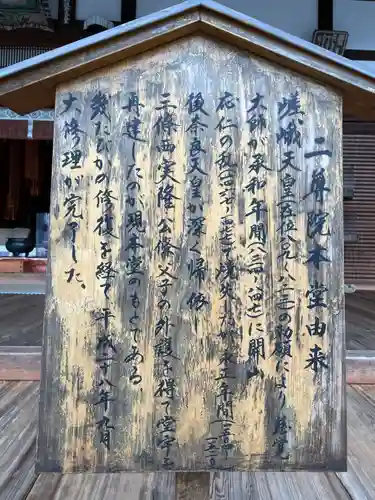 二尊院本堂由来
嵯峨天皇(在位八〇九〜八二三)の勅願により慈覚
大師が承和年間(八三四〜八四七)に開山
応仁の乱(一四六七〜一四七七)で焼失したが永正年間(一五〇四〜一五二一)
後奈良天皇が深く帰依し
三條西実隆公條父子の外護を得て堂宇を
再建したのが現本堂のもとである
幾たびかの修復を経て平成二十八年九月
大修理が完了した。